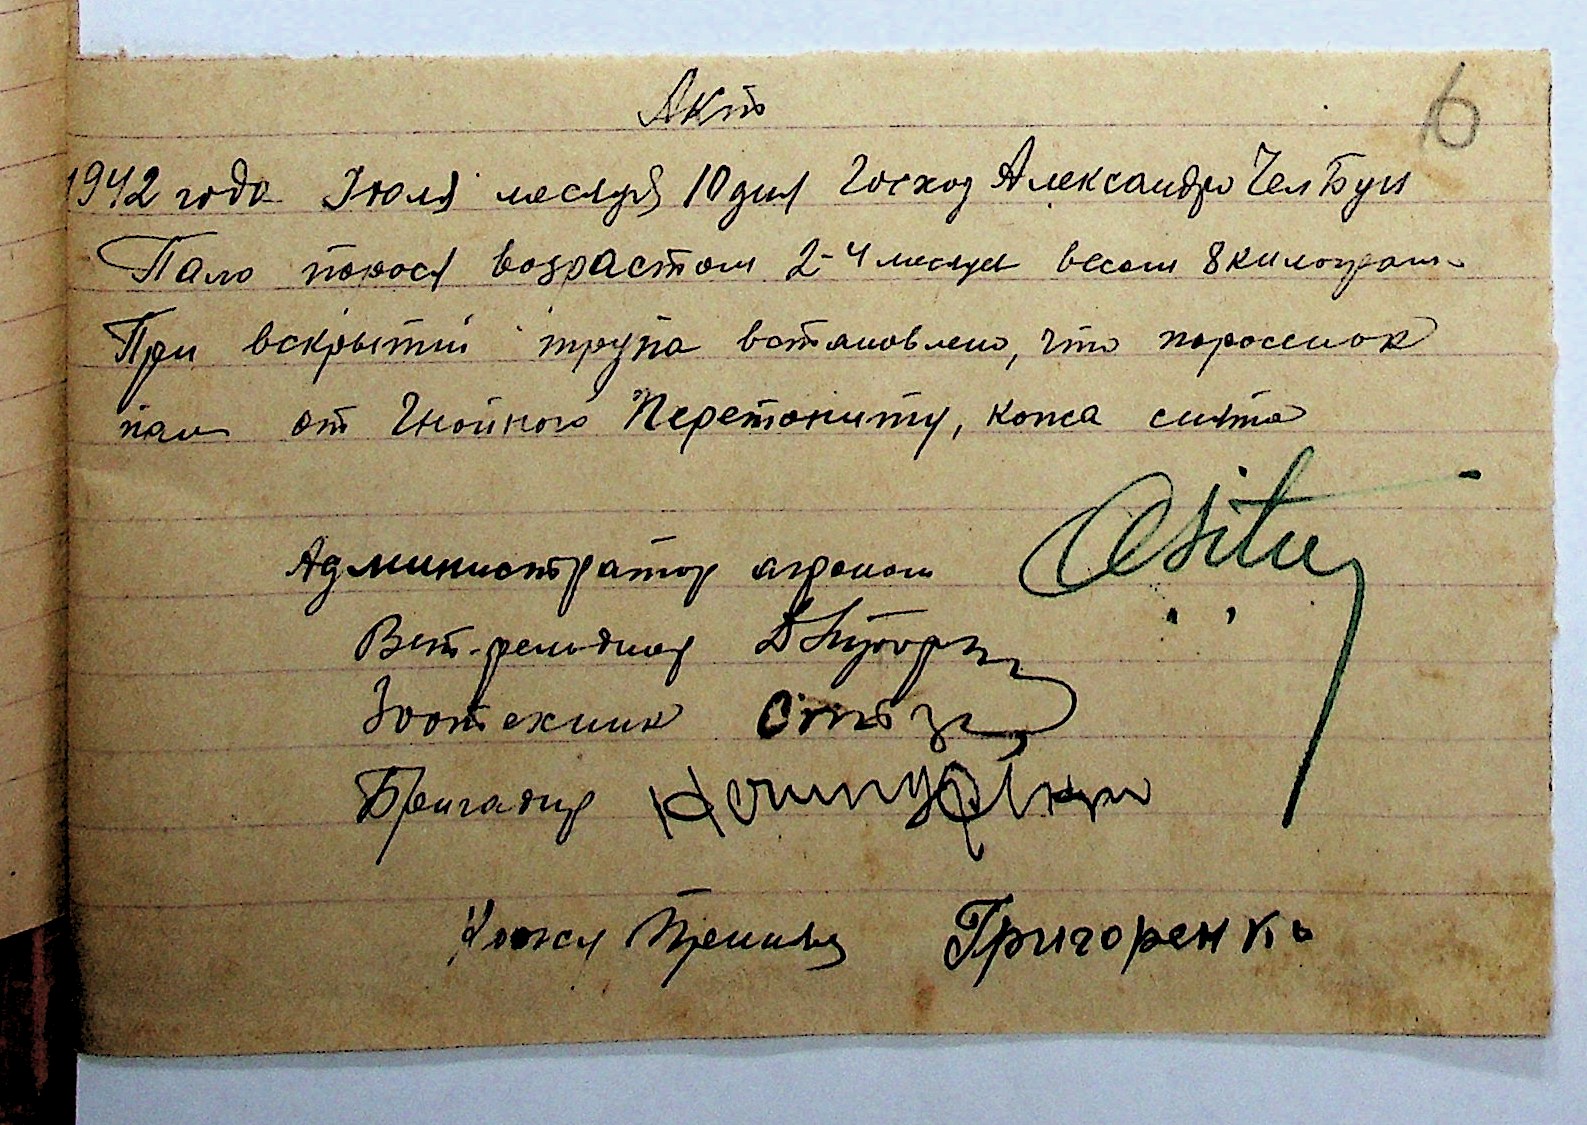 6
Акт
1942 года Июля месяця 10 дня Госхоз Александро Чел Бұги
Пало порося возрастом 2-4 месяця весом 8 килограм
При вскрытии трупа встановлено, что поросенок
пал от Гнойного Перетониту, кожа снята
Администратор агроном
Вет-фельдшер
Зоотехник
Бригадир
Кожу Принял Григоренко